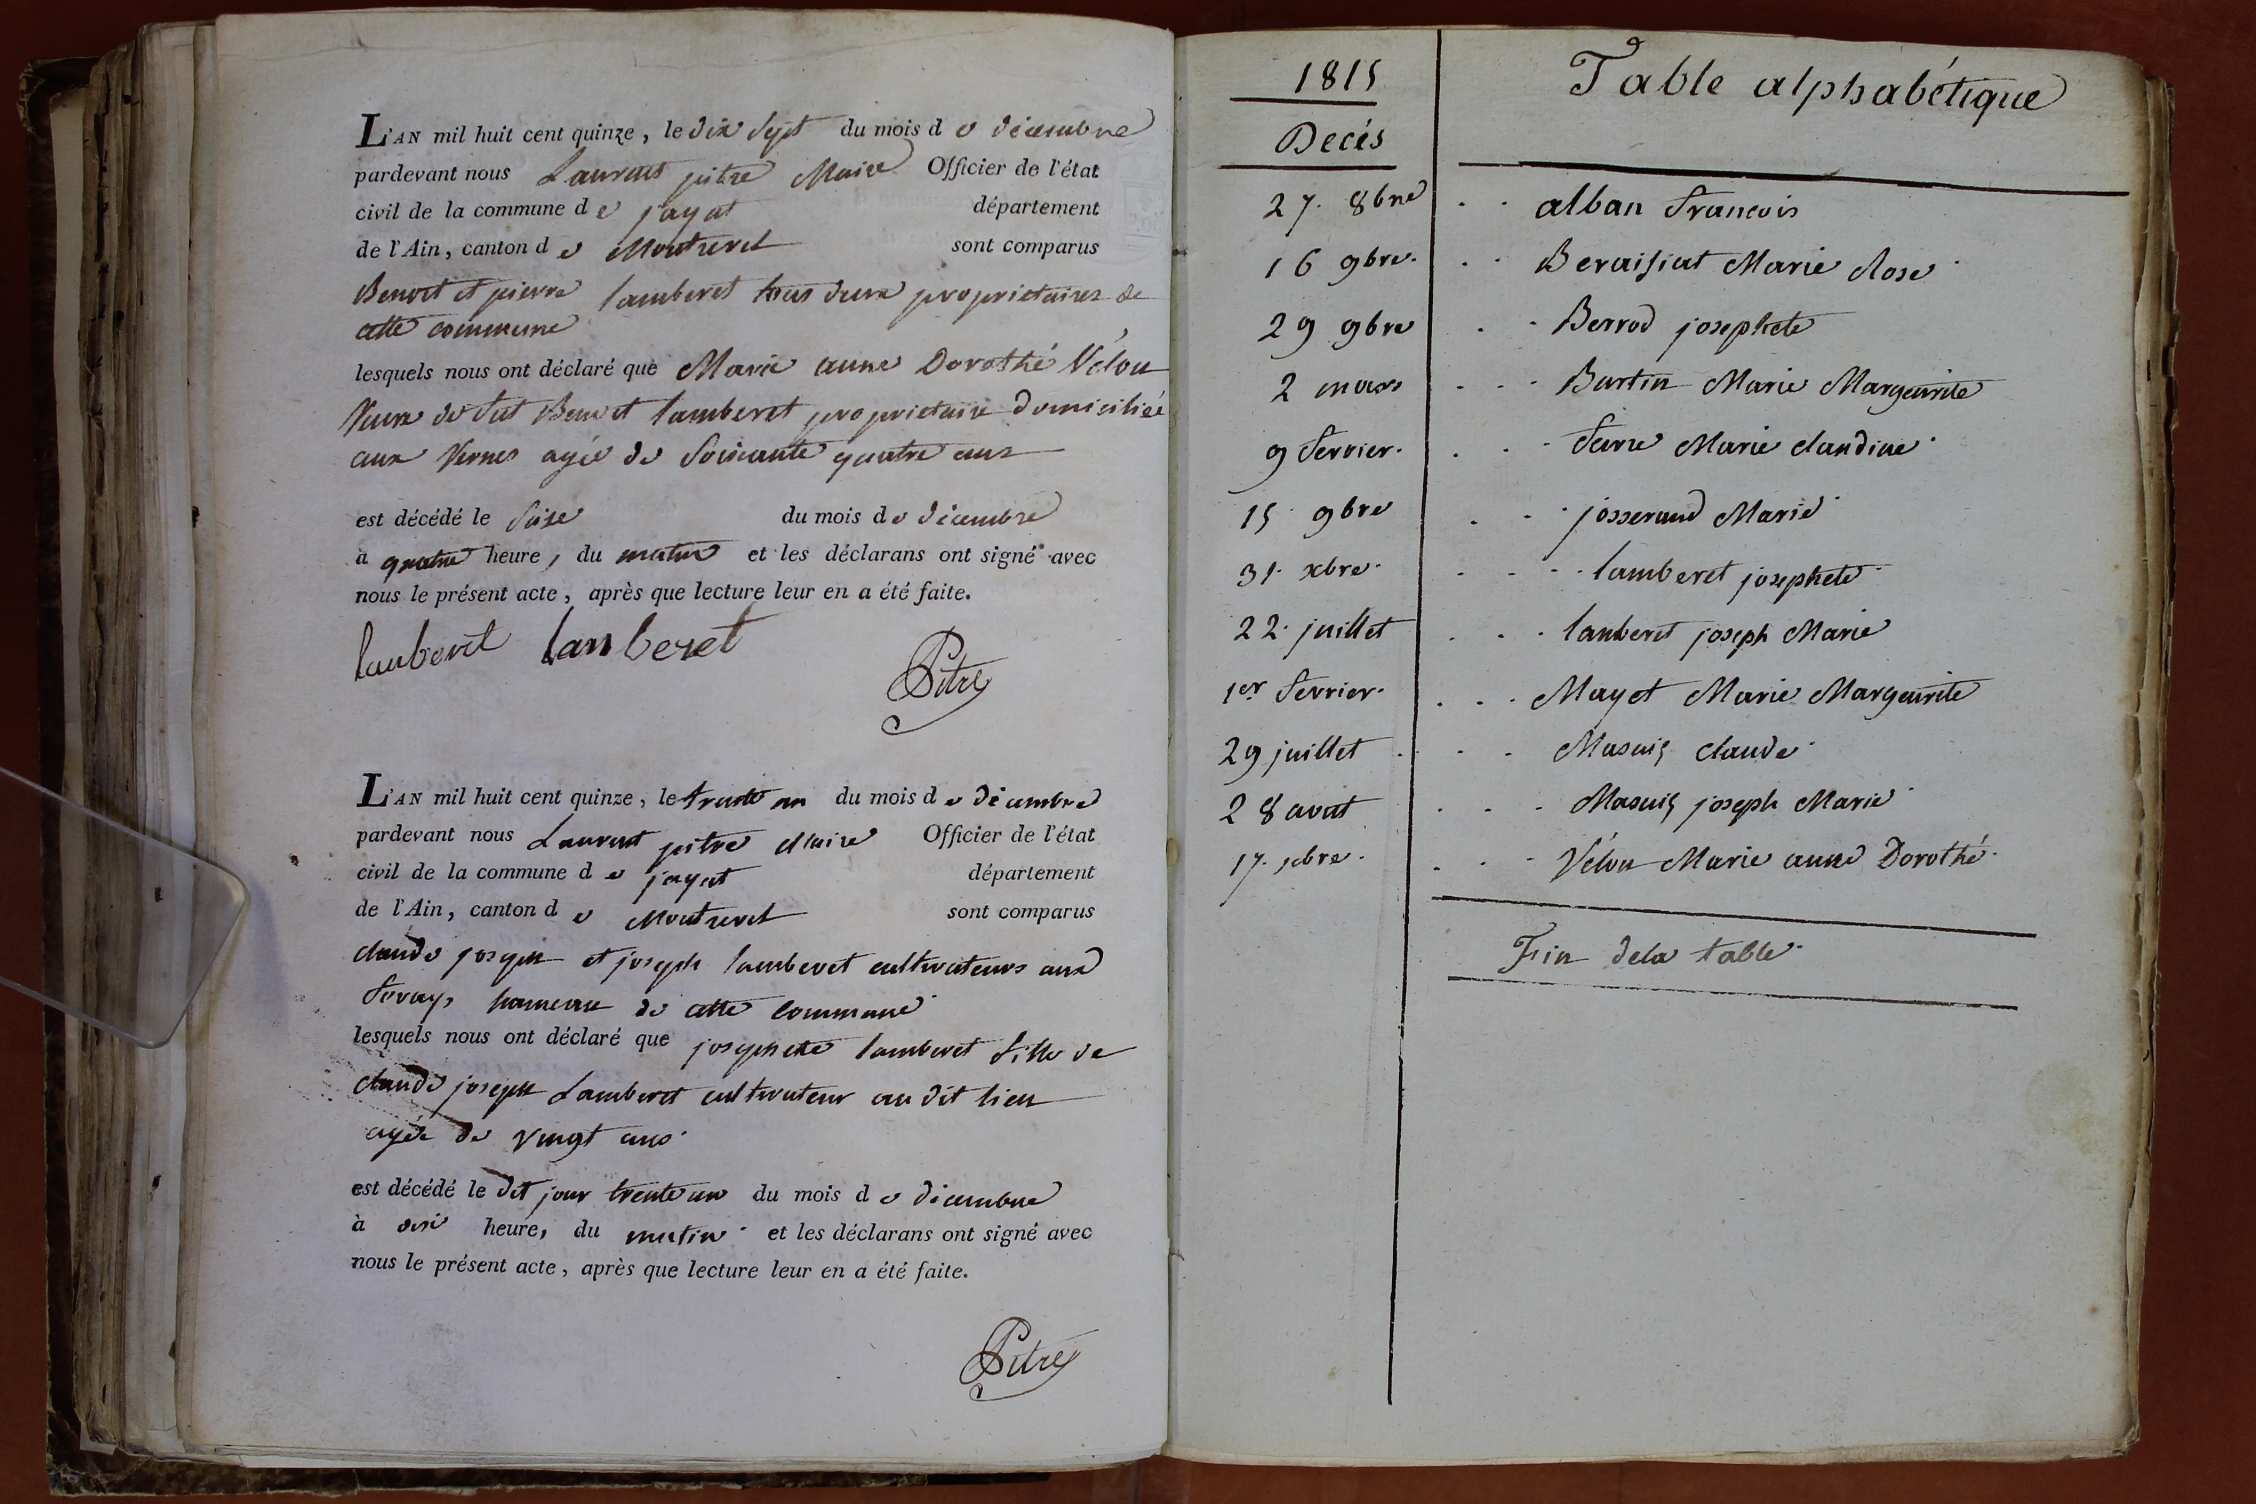 L'AN mil huit cent quinze, le dix sept du mois de décembre
pardevant nous Laurent pitre Maire Officier de l'état
civil de la commune de jayat département
de l'Ain, canton de Montrevel sont comparus
Benoit et pierre lamberet tous deux proprietaires de
cette commune
lesquels nous ont déclaré que Marie anne Dorothé Vélon
Veuve de fut Benoit lamberet proprietaire domiciliée
aux Vernes agée de soixante quatre ans
est décédé le seize du mois de décembre
à quatre heure, du matin et les déclarans ont signé avec
nous le présent acte, après que lecture leur en a été faite.
lamberet lamberet
Pitre
L'AN mil huit cent quinze, le trente un du mois de décembre
pardevant nous Laurent pitre Maire Officier de l'état
civil de la commune de jayat département
de l'Ain, canton de Montrevel sont comparus
claude joseph et joseph lamberet cultivateurs aux
hameau de cette commune
lesquels nous ont déclaré que josephete lamberet fille de
claude joseph Lamberet cultivateur au dit lieu
agée de vingt ans
est décédé le dit jour trente un du mois de décembre
à heure, du matin et les déclarans ont signé avec
nous le présent acte, après que lecture leur en a été faite.
Pitre
1815 Table alphabétique
Decés
27. 8bre alban francois
16 9bre. Beraisiat Marie Rose
29 9bre Berrod josephete
2 mars Burtin Marie Margeurite
9 fevrier. favre Marie claudine
15 9bre josserand Marie
31. xbre. lamberet josephete
22. juillet lamberet joseph Marie
1er fevrier. Mayet Marie Margeurite
29 juillet Masuis claude
28 aout Masuis joseph Marie
17. xbre. Vélon Marie anne Dorothé
Fin dela table